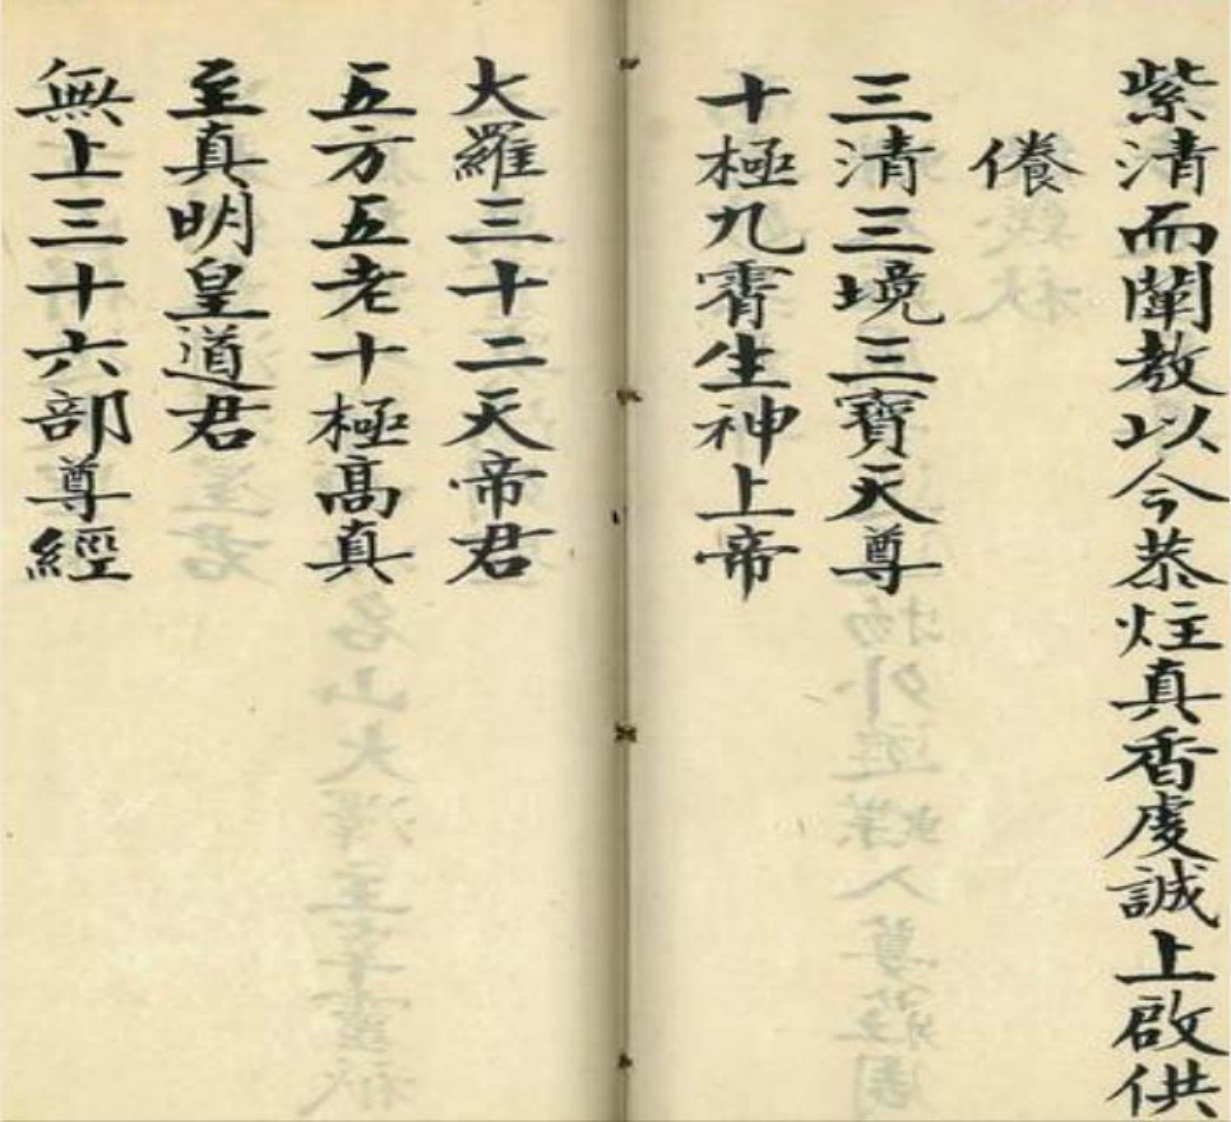 紫清而闡教以今恭炷真香虔誠上啟供
儀
三清三境三寶天尊
十極九霄生神上帝
大羅三十二天帝君
五方五老十極高真
至真明皇道君
無上三十六部尊經